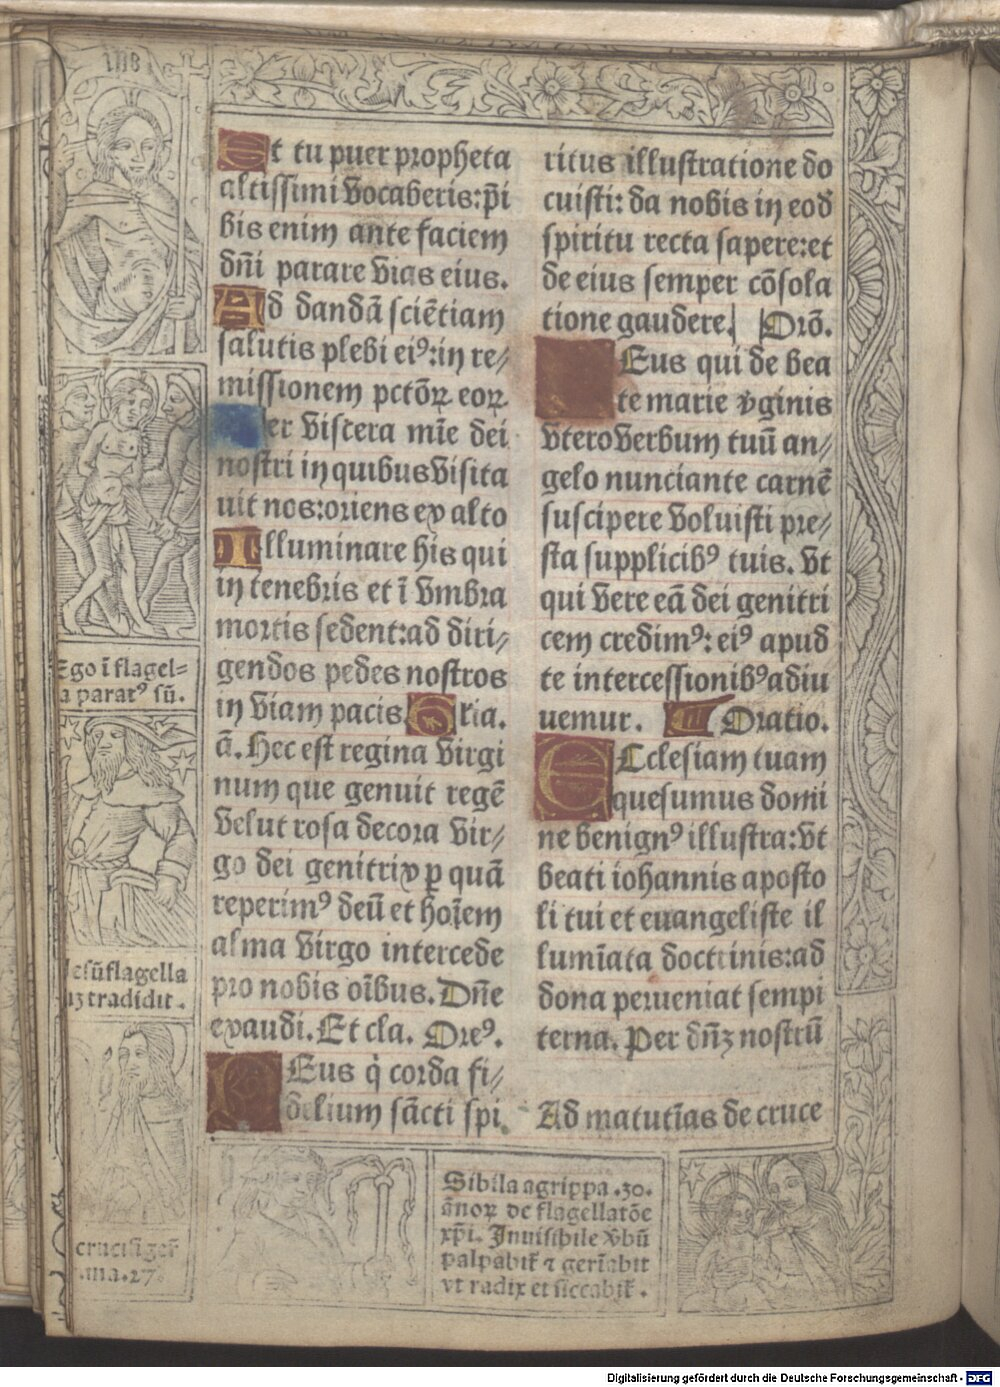 Et tu puer propheta
altissimi vocaberis: p̄i
bis enim ante faciem
dn̄i parare vias eius.
Ad dandā sciētiam
salutis plebi eiꝰ: in re⸗
missionem pctōꝝ eoꝝ
er viscera mīe dei
nostri in quibus visita
uit nos: oriens ex alto
Illuminare his qui
in tenebris et ī vmbra
mortis sedent: ad diri⸗
gendos pedes nostros
in viam pacis. Gria.
ā. Hec est regina virgi
num que genuit regē
velut rosa decora vir⸗
go dei genitrix ꝑ quā
reperimꝰ deū et hoīem
alma virgo intercede
pro nobis oībus. Dn̄e
exaudi. Et cla. Oreꝰ.
Deus q̇ corda fi⸗
delium sācti spi
ritus illustratione do
cuisti: da nobis in eod̄
spiritu recta sapere: et
de eius semper cōsola
tione gaudere. Orō.
Eus qui de bea
te marie v̾ginis
vtero verbum tuū an⸗
gelo nunciante carnē
suscipere voluisti pre⸗
sta supplicibꝰ tuis. vt
qui vere eā dei genitri
cem credimꝰ: eiꝰ apud
te intercessionibꝰ adiu
uemur. Oratio.
ECclesiam tuam
quesumus domi
ne benignꝰ illustra: vt
beati iohannis aposto
li tui et euangeliste il
lumīata doctrinis: ad
dona perueniat sempi
terna. Per dn̄ꝫ nostrū
Ad matutīas de cruce
Ego ī flagel=
a paratꝰ sū.
Iesū flagella
tradidit.
crucifiger̄
.ma.27.
Sibila agrippa .30.
ānoꝝ de flagellatōe
xp̄i. Inuisibile v̾bū
palpabit̄ ⁊ germ̄abit
vt radix et siccabit̄.
Digitalisierung gefördert durch die Deutsche Forschungsgemeinschaft - DFG